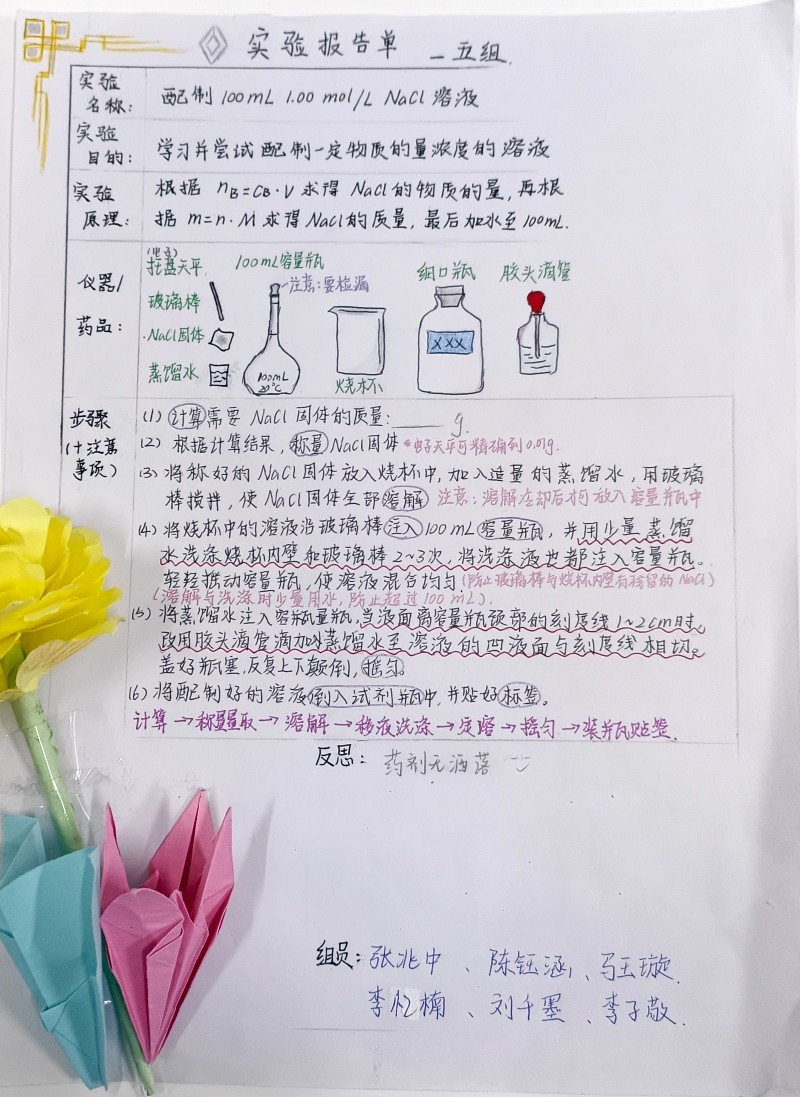 实验报告单 —五组.
实验名称: 配制 100mL 1.00 mol/L NaCl 溶液
实验目的: 学习并尝试配制一定物质的量浓度的溶液
实验原理: 根据 nB=cB·V 求得 NaCl 的物质的量,再根
据 m=n·M 求得NaCl的质量,最后加水至100mL.
仪器/药品:
(电子)
托盘天平 100mL容量瓶 细口瓶 胶头滴管
注意:要检漏
玻璃棒
·NaCl固体
XXX
蒸馏水
100mL
20℃
烧杯
步骤(+注意事项)
(1) 计算需要 NaCl 固体的质量:____g.
(2) 根据计算结果,称量NaCl固体 *电子天平可精确到0.01g.
(3) 将称好的 NaCl固体放入烧杯中,加入适量的蒸馏水,用玻璃
棒搅拌,使NaCl固体全部溶解 注意:溶解冷却后才可放入容量瓶中
(4) 将烧杯中的溶液沿玻璃棒注入100mL容量瓶,并用少量蒸馏
水洗涤烧杯内壁和玻璃棒2~3次,将洗涤液也都注入容量瓶。
轻轻摇动容量瓶,使溶液混合均匀(防止玻璃棒与烧杯内壁有残留的NaCl)
(溶解与洗涤时少量用水,防止超过100mL).
(5) 将蒸馏水注入容量瓶,当液面离容量瓶颈部的刻度线1~2cm时,
改用胶头滴管滴加蒸馏水至溶液的凹液面与刻度线相切。
盖好瓶塞,反复上下颠倒,摇匀。
(6) 将配制好的溶液倒入试剂瓶中,并贴好标签。
计算→称量量取→溶解→移液洗涤→定溶→摇匀→装瓶贴签.
反思: 药剂无洒落
组员: 张兆中、陈钰涵、马玉璇
李松楠、刘千墨、李子敬.